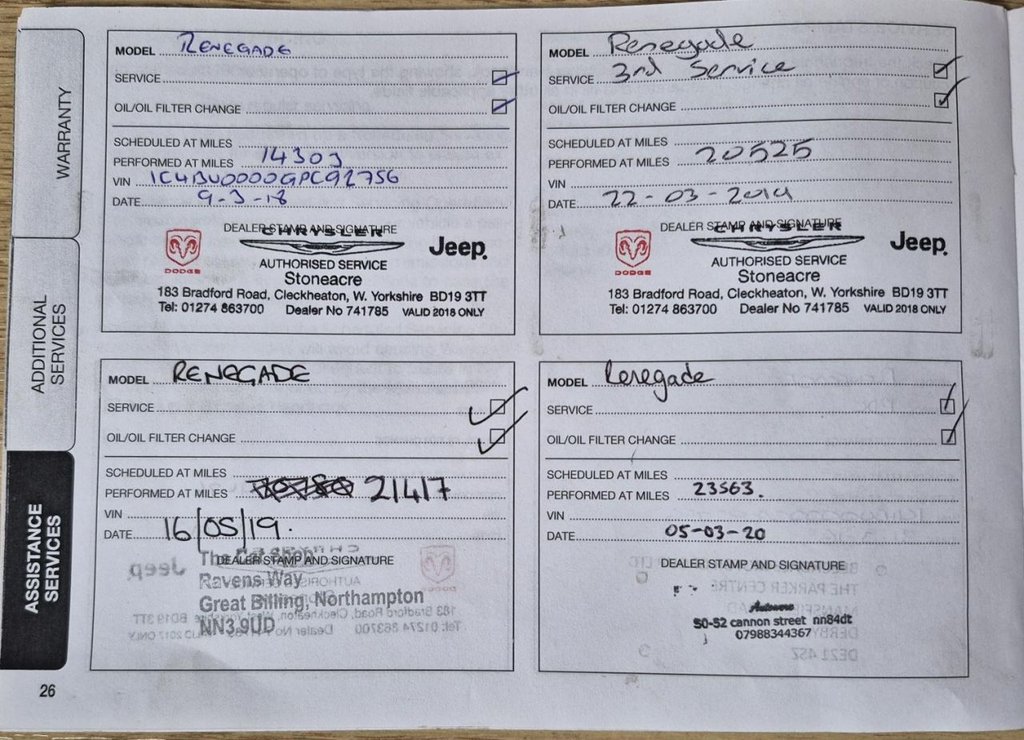 WARRANTY
ADDITIONAL
SERVICES
ASSISTANCE
SERVICES
26
MODEL RENEGADE
SERVICE
OIL/OIL FILTER CHANGE
SCHEDULED AT MILES
PERFORMED AT MILES 14303
VIN 1C4BU0000GPC92756
DATE 9-3-18
DEALER STAMP AND SIGNATURE
CHRYSLER
DODGE
Jeep
AUTHORISED SERVICE
Stoneacre
183 Bradford Road, Cleckheaton, W. Yorkshire BD19 3TT
Tel: 01274 863700 Dealer No 741785 VALID 2018 ONLY
MODEL Renegade
SERVICE 3rd Service
OIL/OIL FILTER CHANGE
SCHEDULED AT MILES
PERFORMED AT MILES 20525
VIN
DATE 22-03-2019
DEALER STAMP AND SIGNATURE
CHRYSLER
DODGE
Jeep
AUTHORISED SERVICE
Stoneacre
183 Bradford Road, Cleckheaton, W. Yorkshire BD19 3TT
Tel: 01274 863700 Dealer No 741785 VALID 2018 ONLY
MODEL RENEGADE
SERVICE
OIL/OIL FILTER CHANGE
SCHEDULED AT MILES
PERFORMED AT MILES 21417
VIN
DATE 16/05/19.
DEALER STAMP AND SIGNATURE
The
Ravens Way
Great Billing, Northampton
NN3 9UD
MODEL Renegade
SERVICE
OIL/OIL FILTER CHANGE
SCHEDULED AT MILES
PERFORMED AT MILES 23563.
VIN
DATE 05-03-20
DEALER STAMP AND SIGNATURE
50-52 cannon street nn84dt
07988344367